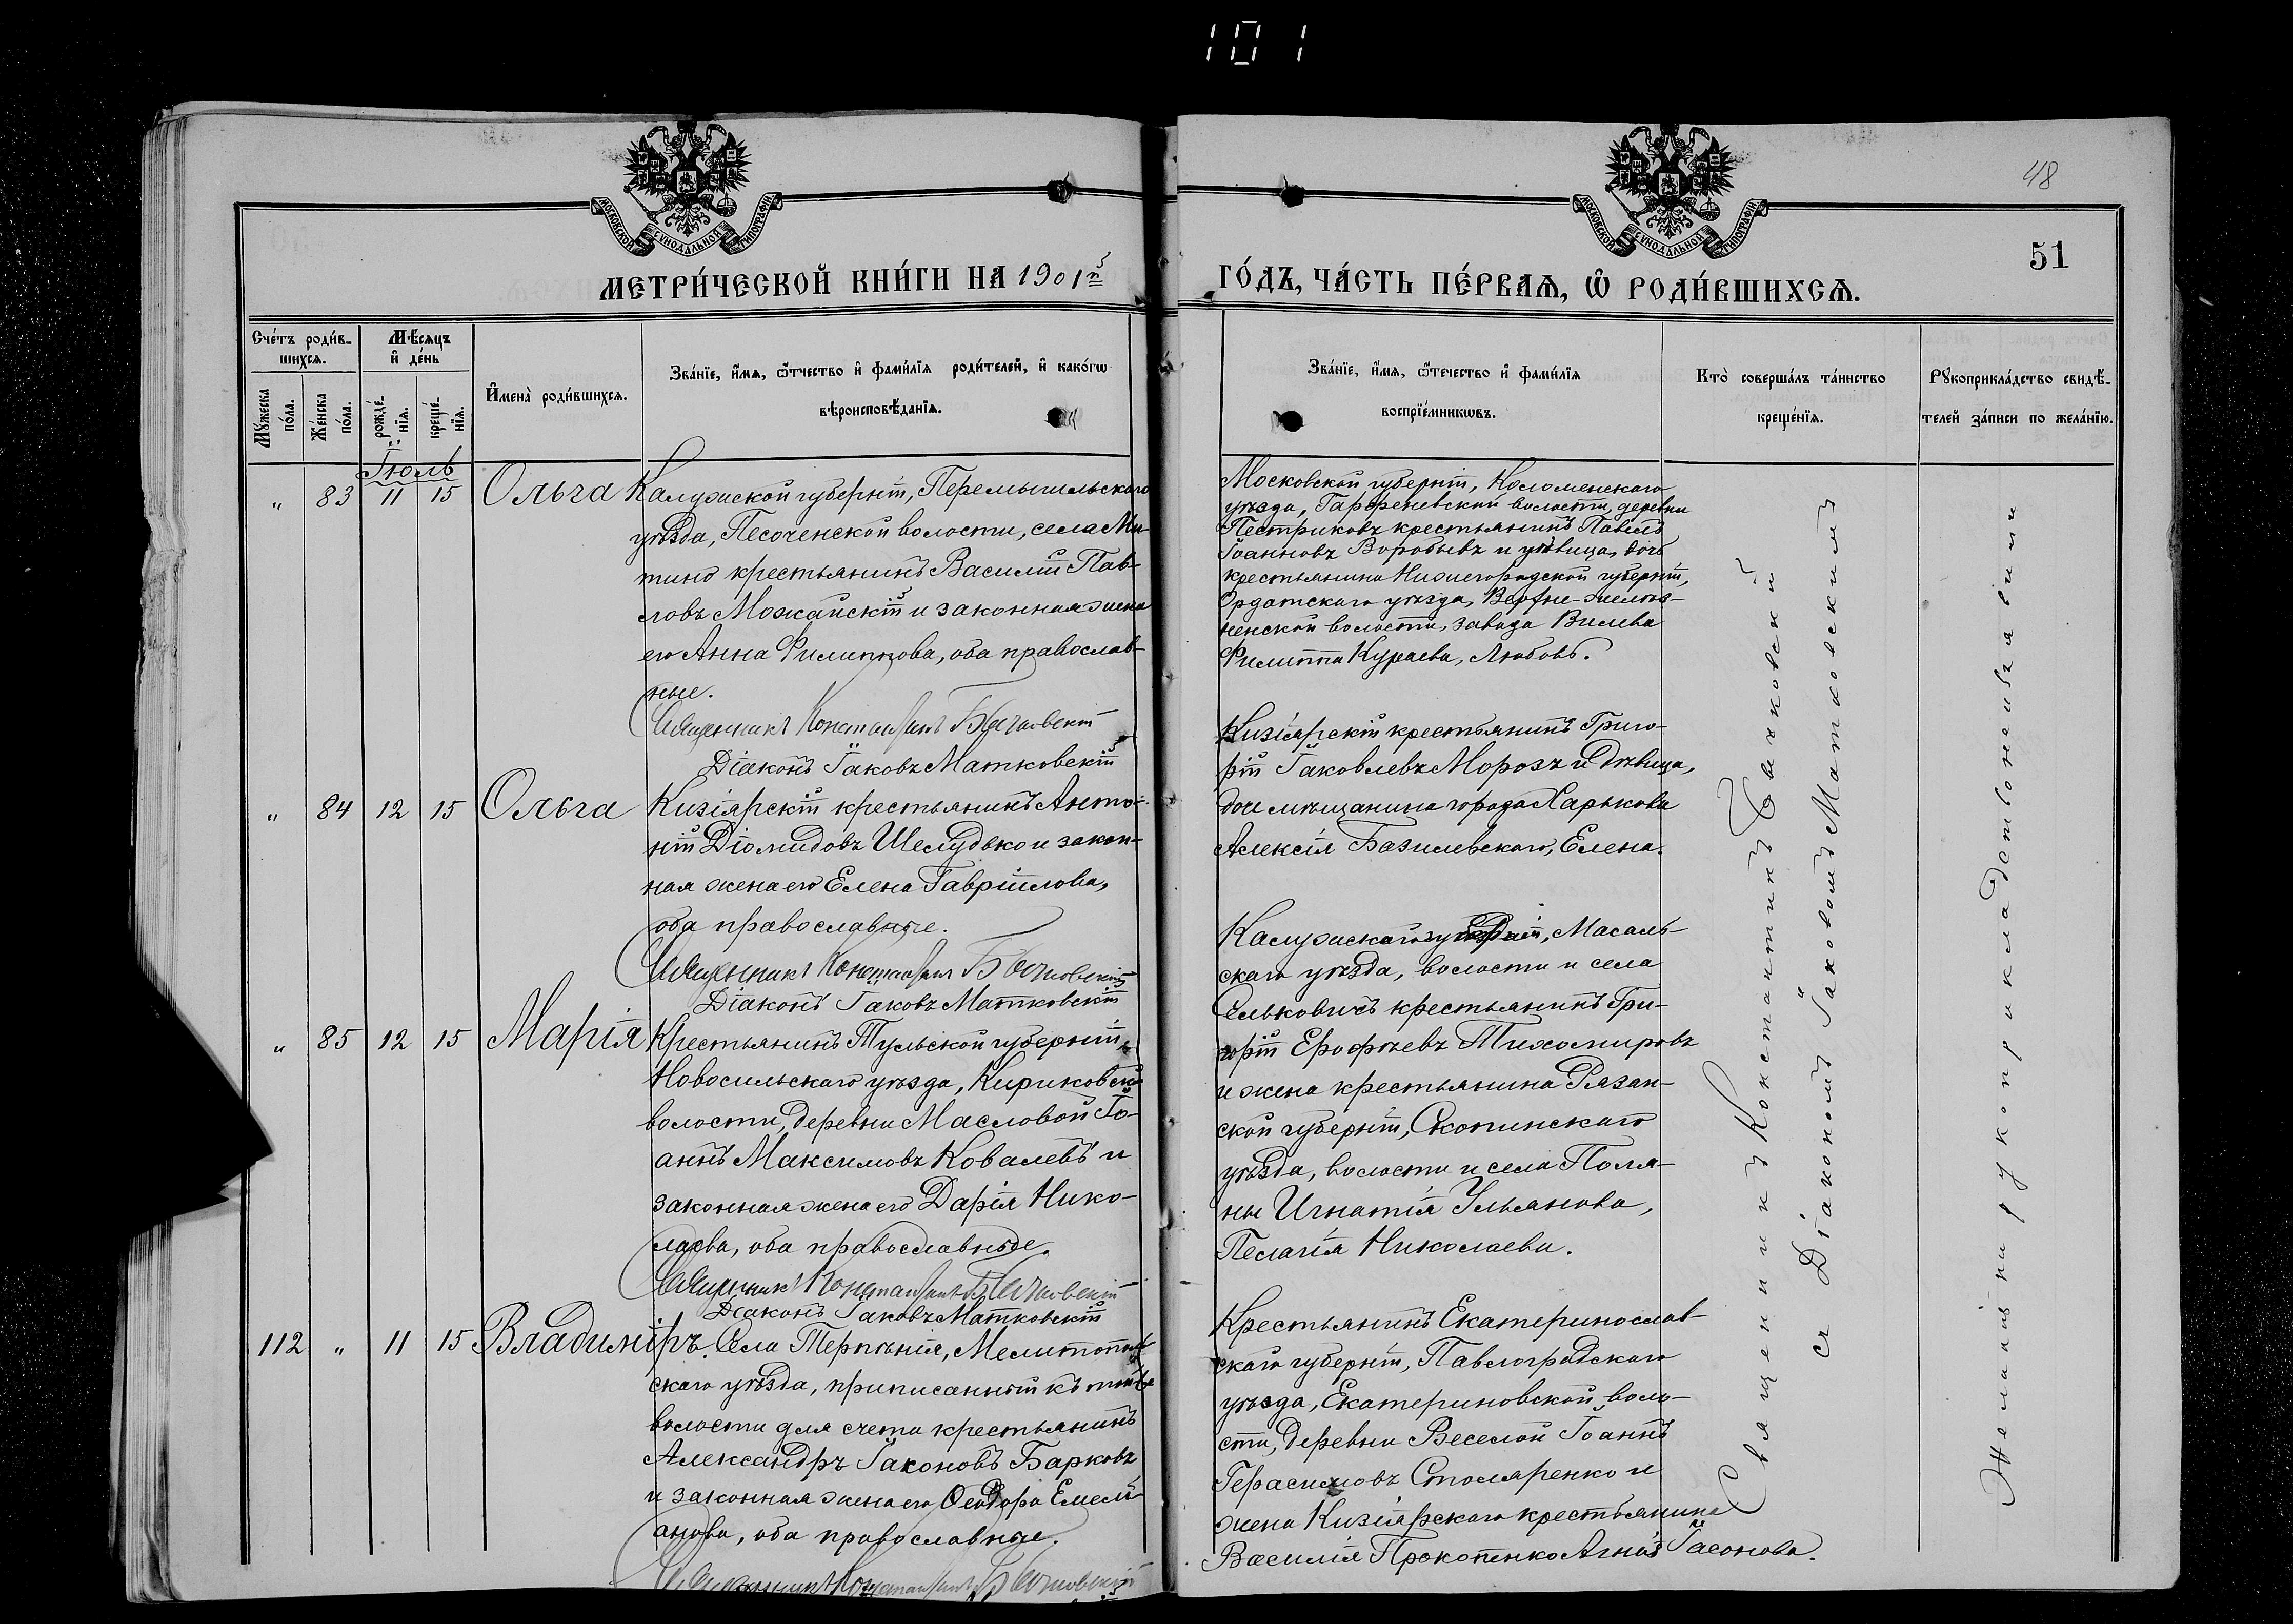 101
48
51
МОСКОВСКОЙ СѴНОДАЛЬНОЙ ТИПОГРАФІИ
МОСКОВСКОЙ СѴНОДАЛЬНОЙ ТИПОГРАФІИ
МЕТРИ́ЧЕСКОЙ КНИ́ГИ НА 1901й
ГО́ДЪ, ЧА́СТЬ ПЕ́РВАѦ, Ѡ҆ РОДИ́ВШИХСѦ.
Сче́тъ роди́в-
шихсѧ.
Мꙋ́жеска
по́ла.
Же́нска
по́ла.
Мѣ́сѧцъ
и҆ де́нь
рожде́-
нїѧ.
креще́-
нїѧ.
И҆мена̀ роди́вшихсѧ.
Зва́нїе, и҆́мѧ, ѻ҆́тчество и҆ фами́лїѧ роди́телей, и҆ како́гѡ
вѣроисповѣ́данїѧ.
Зва́нїе, и҆́мѧ, ѻ҆́течество и҆ фами́лїѧ
воспрїе́мникѡвъ.
Кто̀ соверша́лъ та́инство
креще́нїѧ.
Рꙋкоприкла́дство свидѣ́-
телей за́писи по жела́нїю.
Іюль
" 83 11 15 Ольга
Калужской губерніи, Перемышльскаго
уѣзда, Песоченской волости, села Ми-
тино крестьянинъ Василій Пав-
ловъ Можайскій и законная жена
его Анна Филиппова, оба православ-
ные.
Священникъ Константинъ
Діаконъ Іаковъ Матковскій
Московской губерніи, Коломенскаго
уѣзда, волости, деревни
Пестриковъ крестьянинъ Павелъ
Іоанновъ Воробьевъ и дѣвица, дочь
крестьянина Нижегородской губерніи,
Ордатскаго уѣзда, Верхне-
волости, завода Вилева
Филиппа Кураева, Любовь.
" 84 12 15 Ольга
Кизіярскій крестьянинъ Анто-
ній Діомидовъ Шелудько и закон-
ная жена его Елена Гавріилова,
оба православные.
Священникъ Константинъ
Діаконъ Іаковъ Матковскій
Кизіярскій крестьянинъ Григо-
рій Іаковлевъ Морозъ и дѣвица,
дочь мѣщанина города Харькова
Алексія Базилевскаго, Елена.
" 85 12 15 Марія
Крестьянинъ Тульской губерніи,
Новосильскаго уѣзда, Кириковской
волости, деревни Масловой Іо-
аннъ Максимовъ Ковалевъ и
законная жена его Дарія Нико-
лаева, оба православные.
Священникъ Константинъ
Діаконъ Іаковъ Матковскій
Калужской губерніи, Масаль-
скаго уѣзда, волости и села
Сельковичъ крестьянинъ Гри-
горій Ерофѣевъ Тихомировъ
и жена крестьянина Рязан-
ской губерніи, Скопинскаго
уѣзда, волости и села Поля-
ны Игнатія Ульянова,
Пелагія Николаева.
112 " 11 15 Владиміръ.
Села Терпѣнія, Мелитополь-
скаго уѣзда, приписанный къ той же
волости для счета крестьянинъ
Александръ Барковъ
и законная жена его Ѳеодора Емели-
анова, оба православные.
Священникъ Константинъ
Крестьянинъ Екатеринослав-
скаго губерніи, Павлоградскаго
уѣзда, Екатериновской воло-
сти, деревни Веселой Іоаннъ
Герасимовъ Столяренко и
жена Кизіярскаго крестьянина
Василія Прокопенко Іасонова.
Священникъ Константинъ
съ Діакономъ Іаковомъ Матковскимъ
Желанія къ рукоприкладству не изъявили